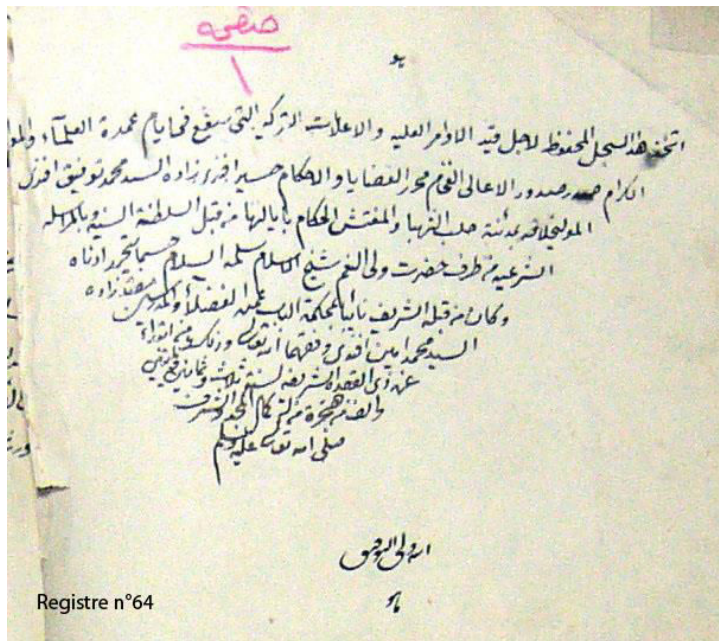 صفحه
١
هو
اتخذ هذا السجل المحفوظ لاجل قيد الاوامر العليه والاعلامات التركيه التي ستقع في ايام عمدة العلمآء
الكرام صدر صدور الاعالي الفخام محرر القضايا والاحكام زاده السيد محمد توفيق افندي
المولى خلافه بمدينة حلب الشهبا والمفتش الحكام بايالتها من قبل السلطنة السنيه وبالمراسله
الشرعيه من طرف حضرت ولي النعم شيخ الاسلام سلمه السلام حسبما تحرر ادناه
وكان من قبله الشريف نايبا بمحكمة الباب زاده
السيد محمد امين افندي وفقهما الله تعالى وذلك من ابتداء
غرة ذي القعدة الشريفه لسنة ثلاث وثمانين ومايتين
والف من هجرة من له كمال المجد والشرف
صلى الله تعالى عليه وسلم
الله ولي التوفيق
Registre n°64